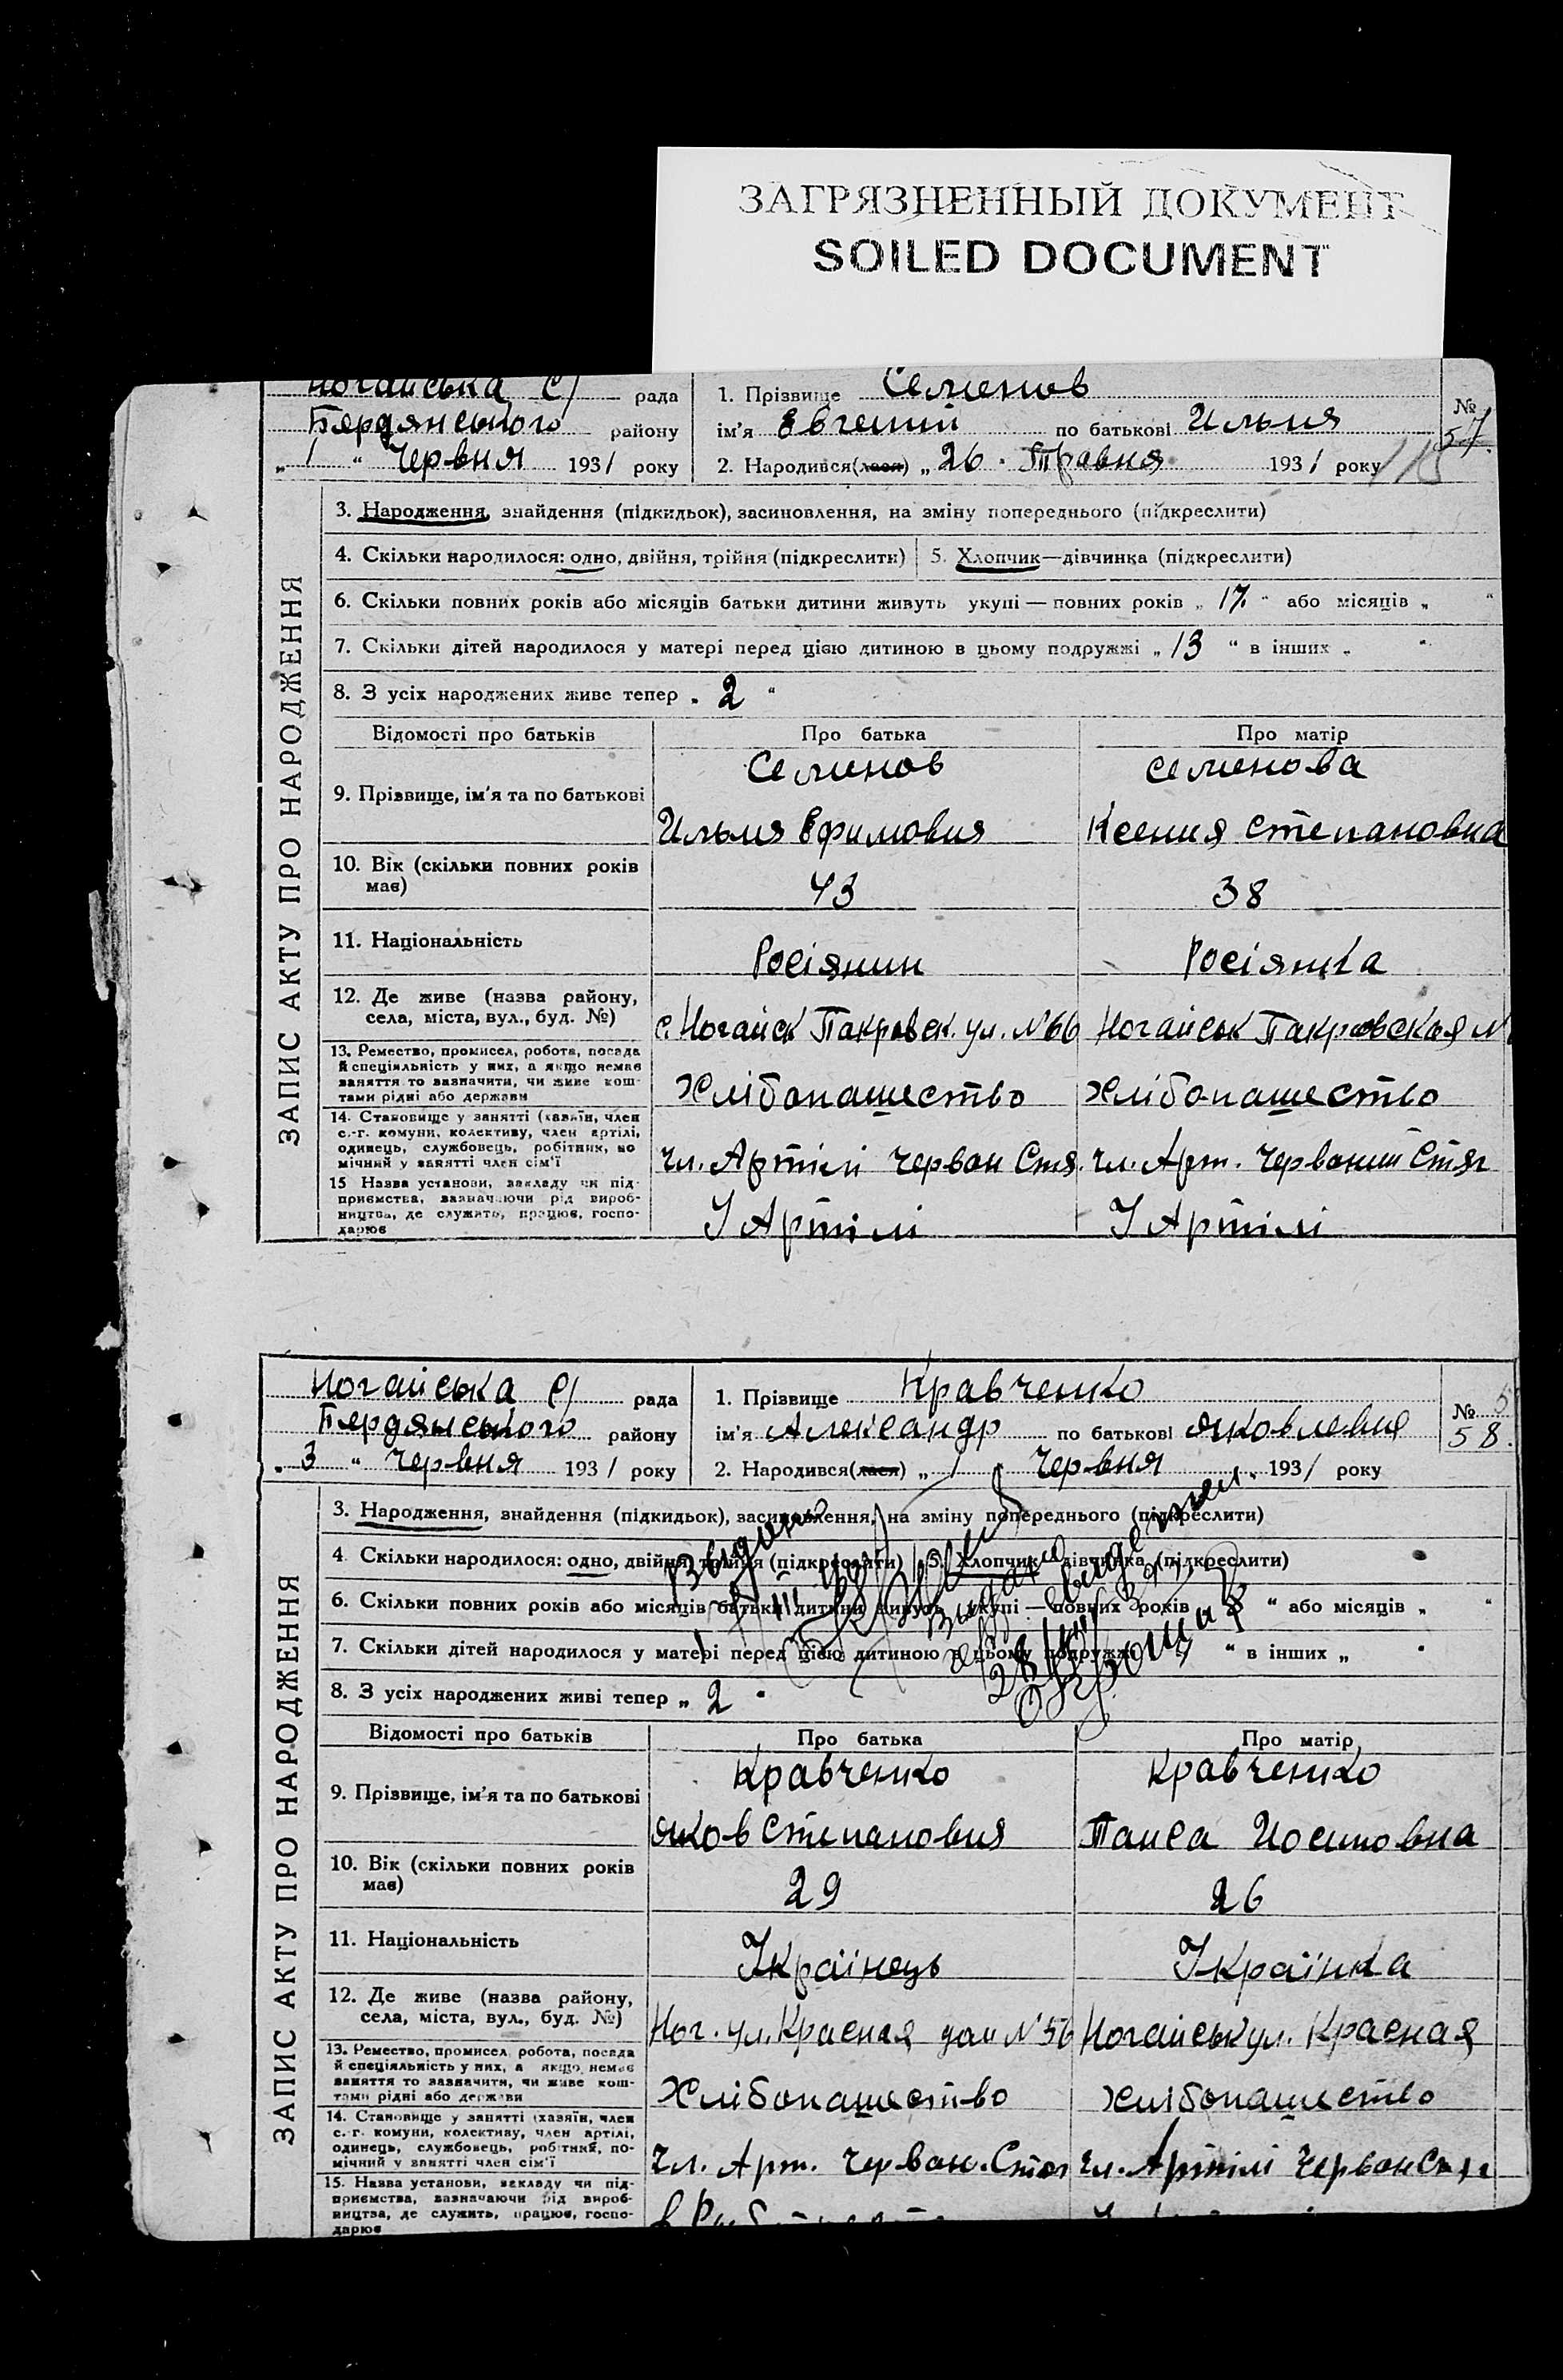 ЗАГРЯЗНЕННЫЙ ДОКУМЕНТ
SOILED DOCUMENT
ЗАПИС АКТУ ПРО НАРОДЖЕННЯ
Ногайська С/ рада
Бердянського району
„ 1 “ Червня 1931 року
1. Прізвище Семенов
ім'я Евгений по батькові Илья
2. Народився(лася) „ 26 “ Травня 1931 року
№ 57
115
3. Народження, знайдення (підкидьок), засиновлення, на зміну попереднього (підкреслити)
4. Скільки народилося: одно, двійня, трійня (підкреслити) 5. Хлопчик—дівчинка (підкреслити)
6. Скільки повних років або місяців батьки дитини живуть укупі — повних років „ 17 “ або місяців „ “
7. Скільки дітей народилося у матері перед цією дитиною в цьому подружжі „ 13 “ в інших „ “
8. З усіх народжених живе тепер „ 2 “
Відомості про батьків Про батька Про матір
9. Прізвище, ім'я та по батькові
Семенов Семенова
Илья Ефимовия Ксения Степановна
10. Вік (скільки повних років має) 43 38
11. Національність Росіянин Росіянка
12. Де живе (назва району, села, міста, вул., буд. №)
с. Ногайск Пакровск. ул. №66 Ногайськ Пакровская №
13. Ремество, промисел, робота, посада й спеціяльність у них, а якщо немає заняття то зазначити, чи живе коштами рідні або держави
Хлібопашество Хлібопашество
14. Становище у занятті (хазяїн, член с.-г. комуни, колективу, член артілі, одинець, службовець, робітник, помічний у занятті член сім'ї
чл. Артілі Червон Стя. чл. Арт. Червоний Стяг
15 Назва установи, закладу чи підприємства, зазначаючи рід виробництва, де служить, працює, господарює
У Артілі У Артілі
ЗАПИС АКТУ ПРО НАРОДЖЕННЯ
Ногайська С/ рада
Бердянського району
„ 3 “ Червня 1931 року
1. Прізвище Кравченко
ім'я Александр по батькові Яковлевия
2. Народився(лася) „ 1 “ Червня 1931 року
№ 58.
3. Народження, знайдення (підкидьок), засиновлення, на зміну попереднього (підкреслити)
4. Скільки народилося: одно, двійня, трійня (підкреслити) 5. Хлопчик—дівчинка (підкреслити)
6. Скільки повних років або місяців батьки дитини живуть укупі — повних років 8 “ або місяців „ “
7. Скільки дітей народилося у матері перед цією дитиною в цьому подружжі “ в інших „ “
8. З усіх народжених живі тепер „ 2 “
Відомості про батьків Про батька Про матір
9. Прізвище, ім'я та по батькові
Кравченко Кравченко
Яков Степановия Таиса Иосиповна
10. Вік (скільки повних років має) 29 26
11. Національність Українець Українка
12. Де живе (назва району, села, міста, вул., буд. №)
Ног. ул. Красная дом №56 Ногайськ ул. Красная
13. Ремество, промисел, робота, посада й спеціяльність у них, а якщо немає заняття то зазначити, чи живе коштами рідні або держави
Хлібопашество Хлібопашество
14. Становище у занятті (хазяїн, член с.-г. комуни, колективу, член артілі, одинець, службовець, робітник, помічний у занятті член сім'ї
чл. Арт. Червон. Стяг чл. Артілі Червон Стяг
15. Назва установи, закладу чи підприємства, зазначаючи рід виробництва, де служить, працює, господарює